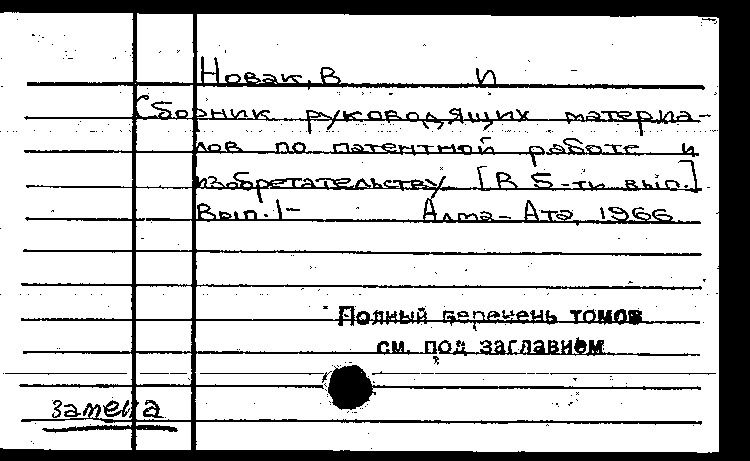 Новак, В И
Сборник руководящих материа-
лов по патентной работе и
изобретательству [В 5-ти вып.]
Вып. 1- Алма-Ата, 1966
Полный перечень томов
см. под заглавием
замена